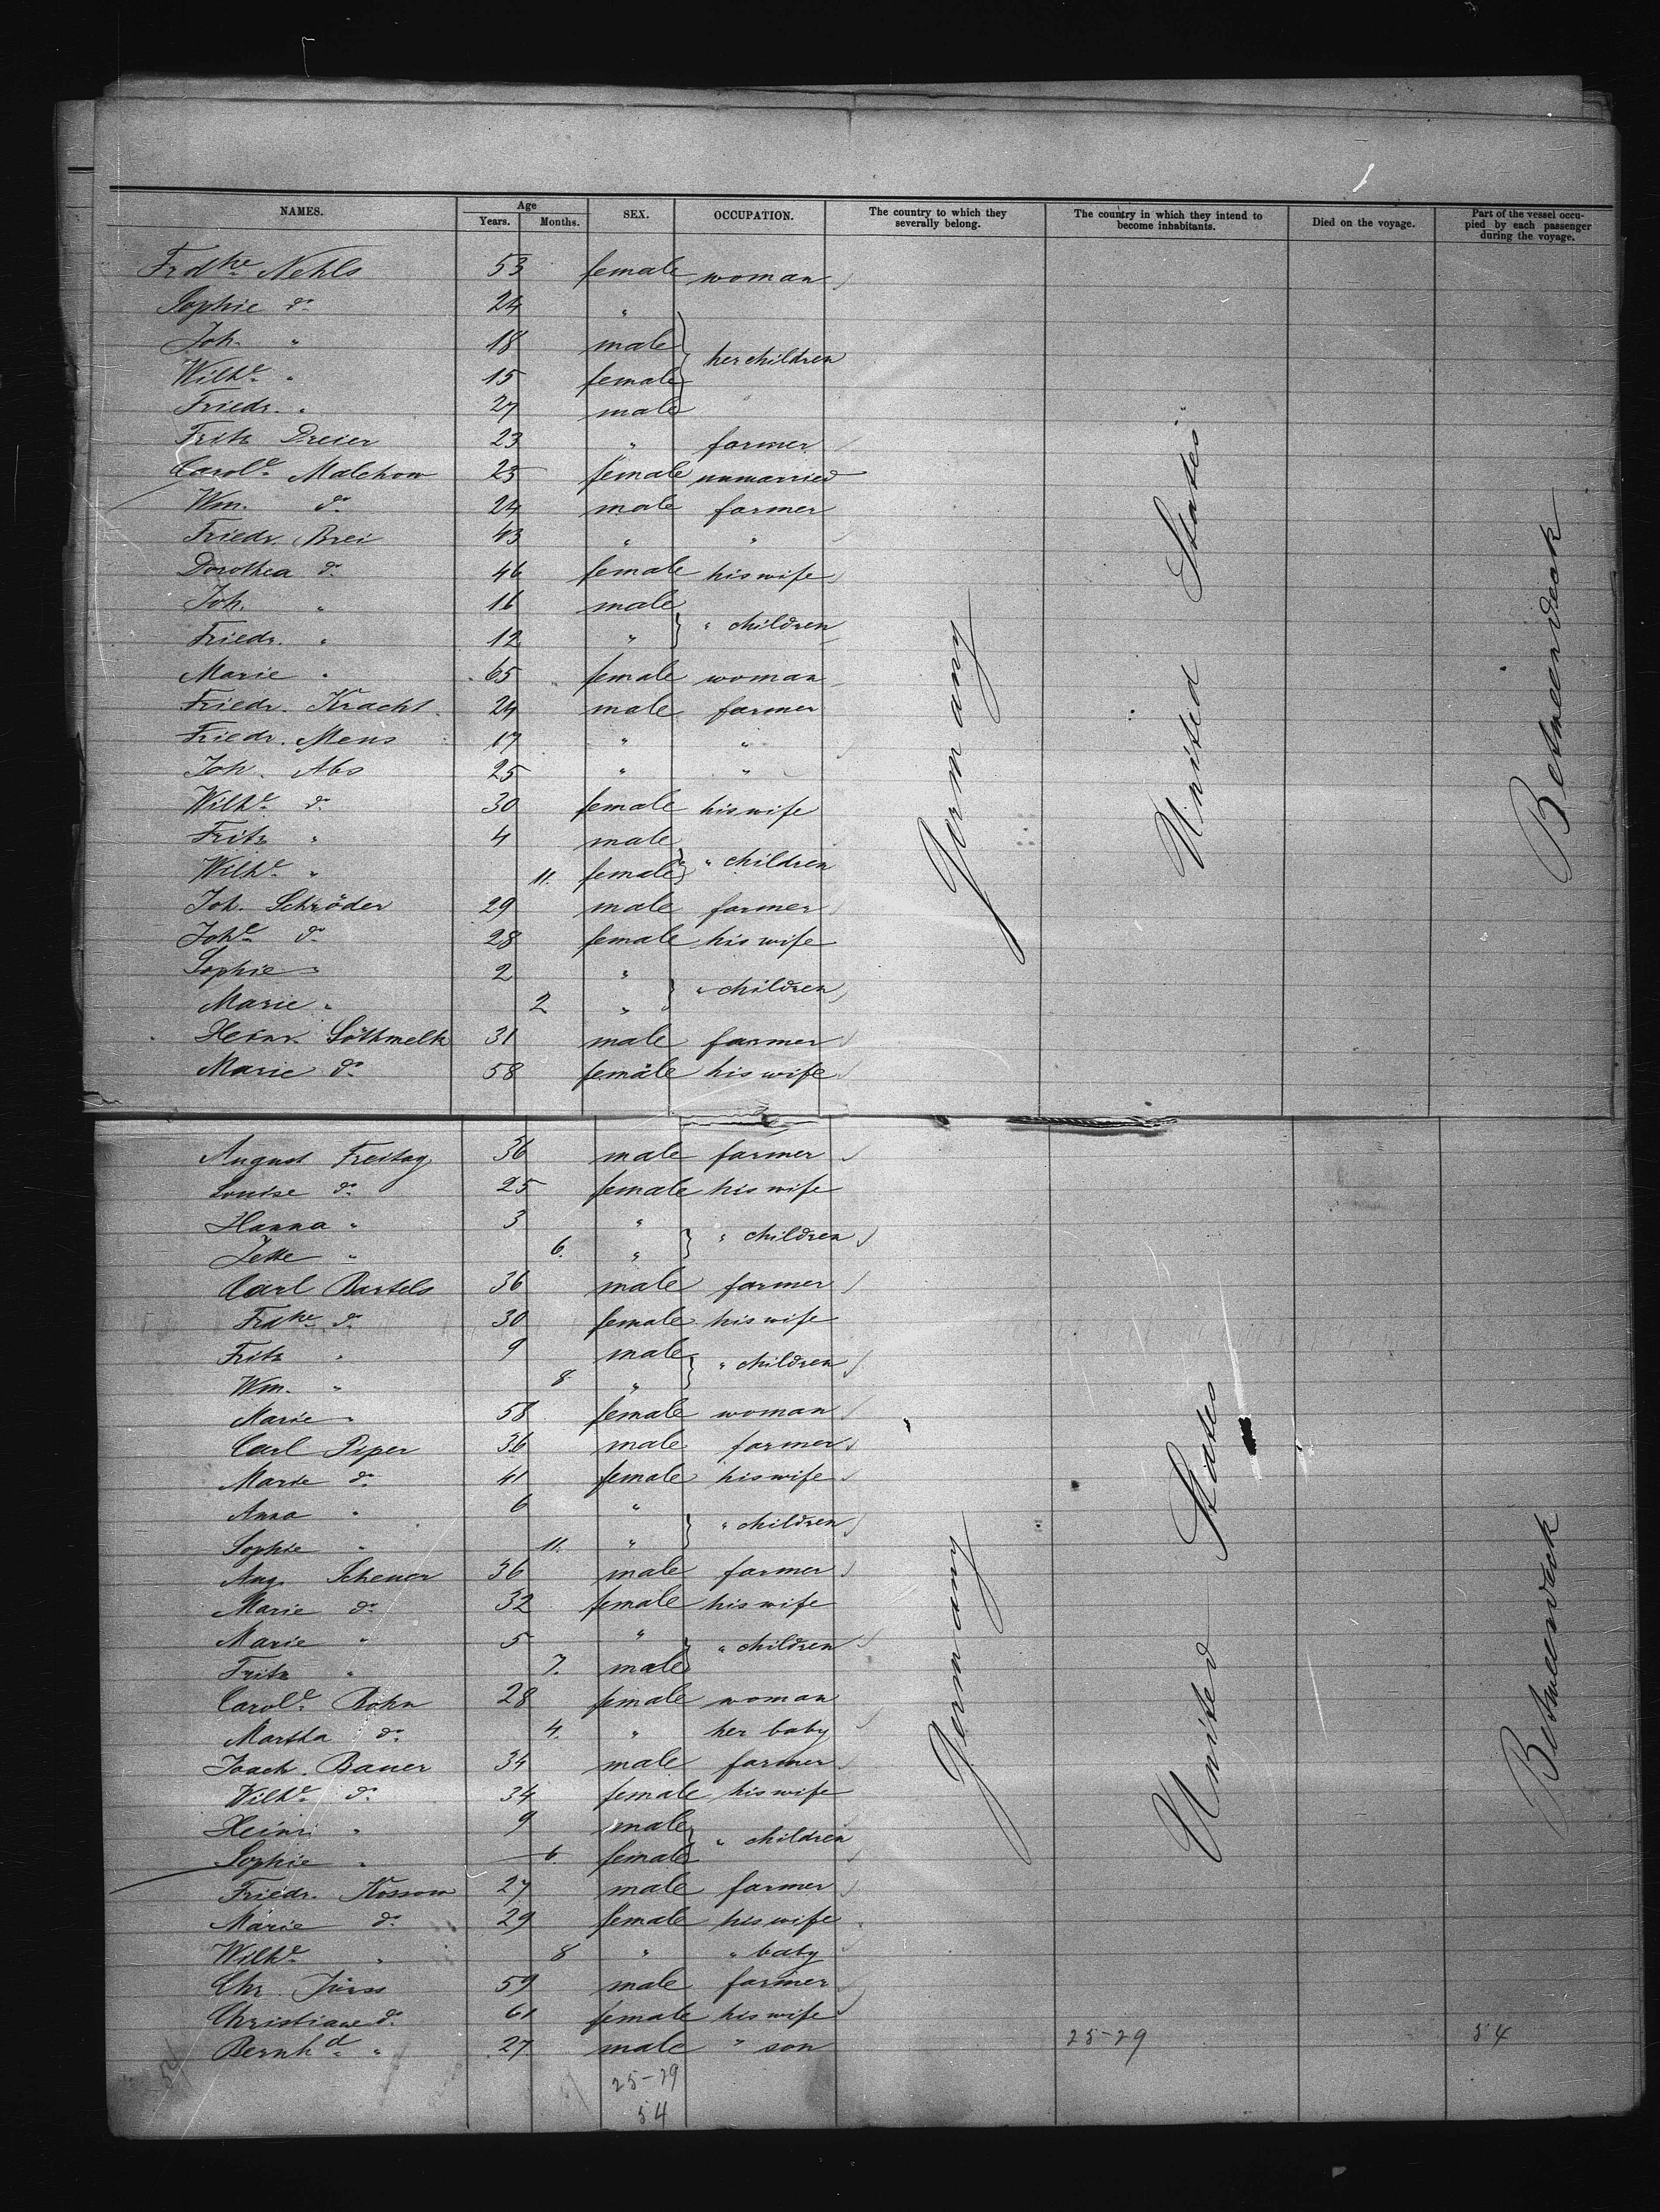 NAMES. Age Years. Months. SEX. OCCUPATION. The country to which they severally belong. The country in which they intend to become inhabitants. Died on the voyage. Part of the vessel occupied by each passenger during the voyage.
Frdke Nehls 53 female woman
Sophie do 24 "
Joh. " 18 male } her children
Wilhe " 15 female
Friedr. " 27 male
Fritz Dreier 23 " farmer
Carole Malchow 25 female unmarried
Wm. do 24 male farmer
Friedr. Brei 43 " "
Dorothea do 46 female his wife
Joh. " 16 male
Friedr. " 12 " } " children
Marie " 65 female woman
Friedr. Kracht 24 male farmer
Friedr. Mens 17 " "
Joh. Abs 25 " "
Wilhe do 30 female his wife
Fritz " 4 male
Wilhe " 11. female } " children
Joh. Schröder 29 male farmer
Johe do 28 female his wife
Sophie " 2 "
Marie " 2 " } " children
Heinr. Söthmelk 31 male farmer
Marie do 58 female his wife
Germany
United States
Betweendeck
August Freitag 36 male farmer
Louise do 25 female his wife
Hanna " 3 "
Jette " 6. " } " children
Carl Bartels 36 male farmer
Frdke do 30 female his wife
Fritz " 9 male
Wm. " 8 " } " children
Marie " 58 female woman
Carl Piper 36 male farmer
Marie do 41 female his wife
Anna " 6 "
Sophie " 11. " } " children
Aug. Scheuer 36 male farmer
Marie do 32 female his wife
Marie " 5 "
Fritz " 7. male } " children
Carole Rohn 28 female woman
Martha do 4. " her baby
Joach. Bauer 34 male farmer
Wilhe do 34 female his wife
Heinr. " 9 male
Sophie " 6. female } " children
Friedr. Kossow 27 male farmer
Marie do 29 female his wife
Wilhe " 8 " " baby
Chr. Jürss 59 male farmer
Christiane do 61 female his wife
Bernhd " 27 male " son
Germany
United States
Betweendeck
25-29 54
54 25-29
54